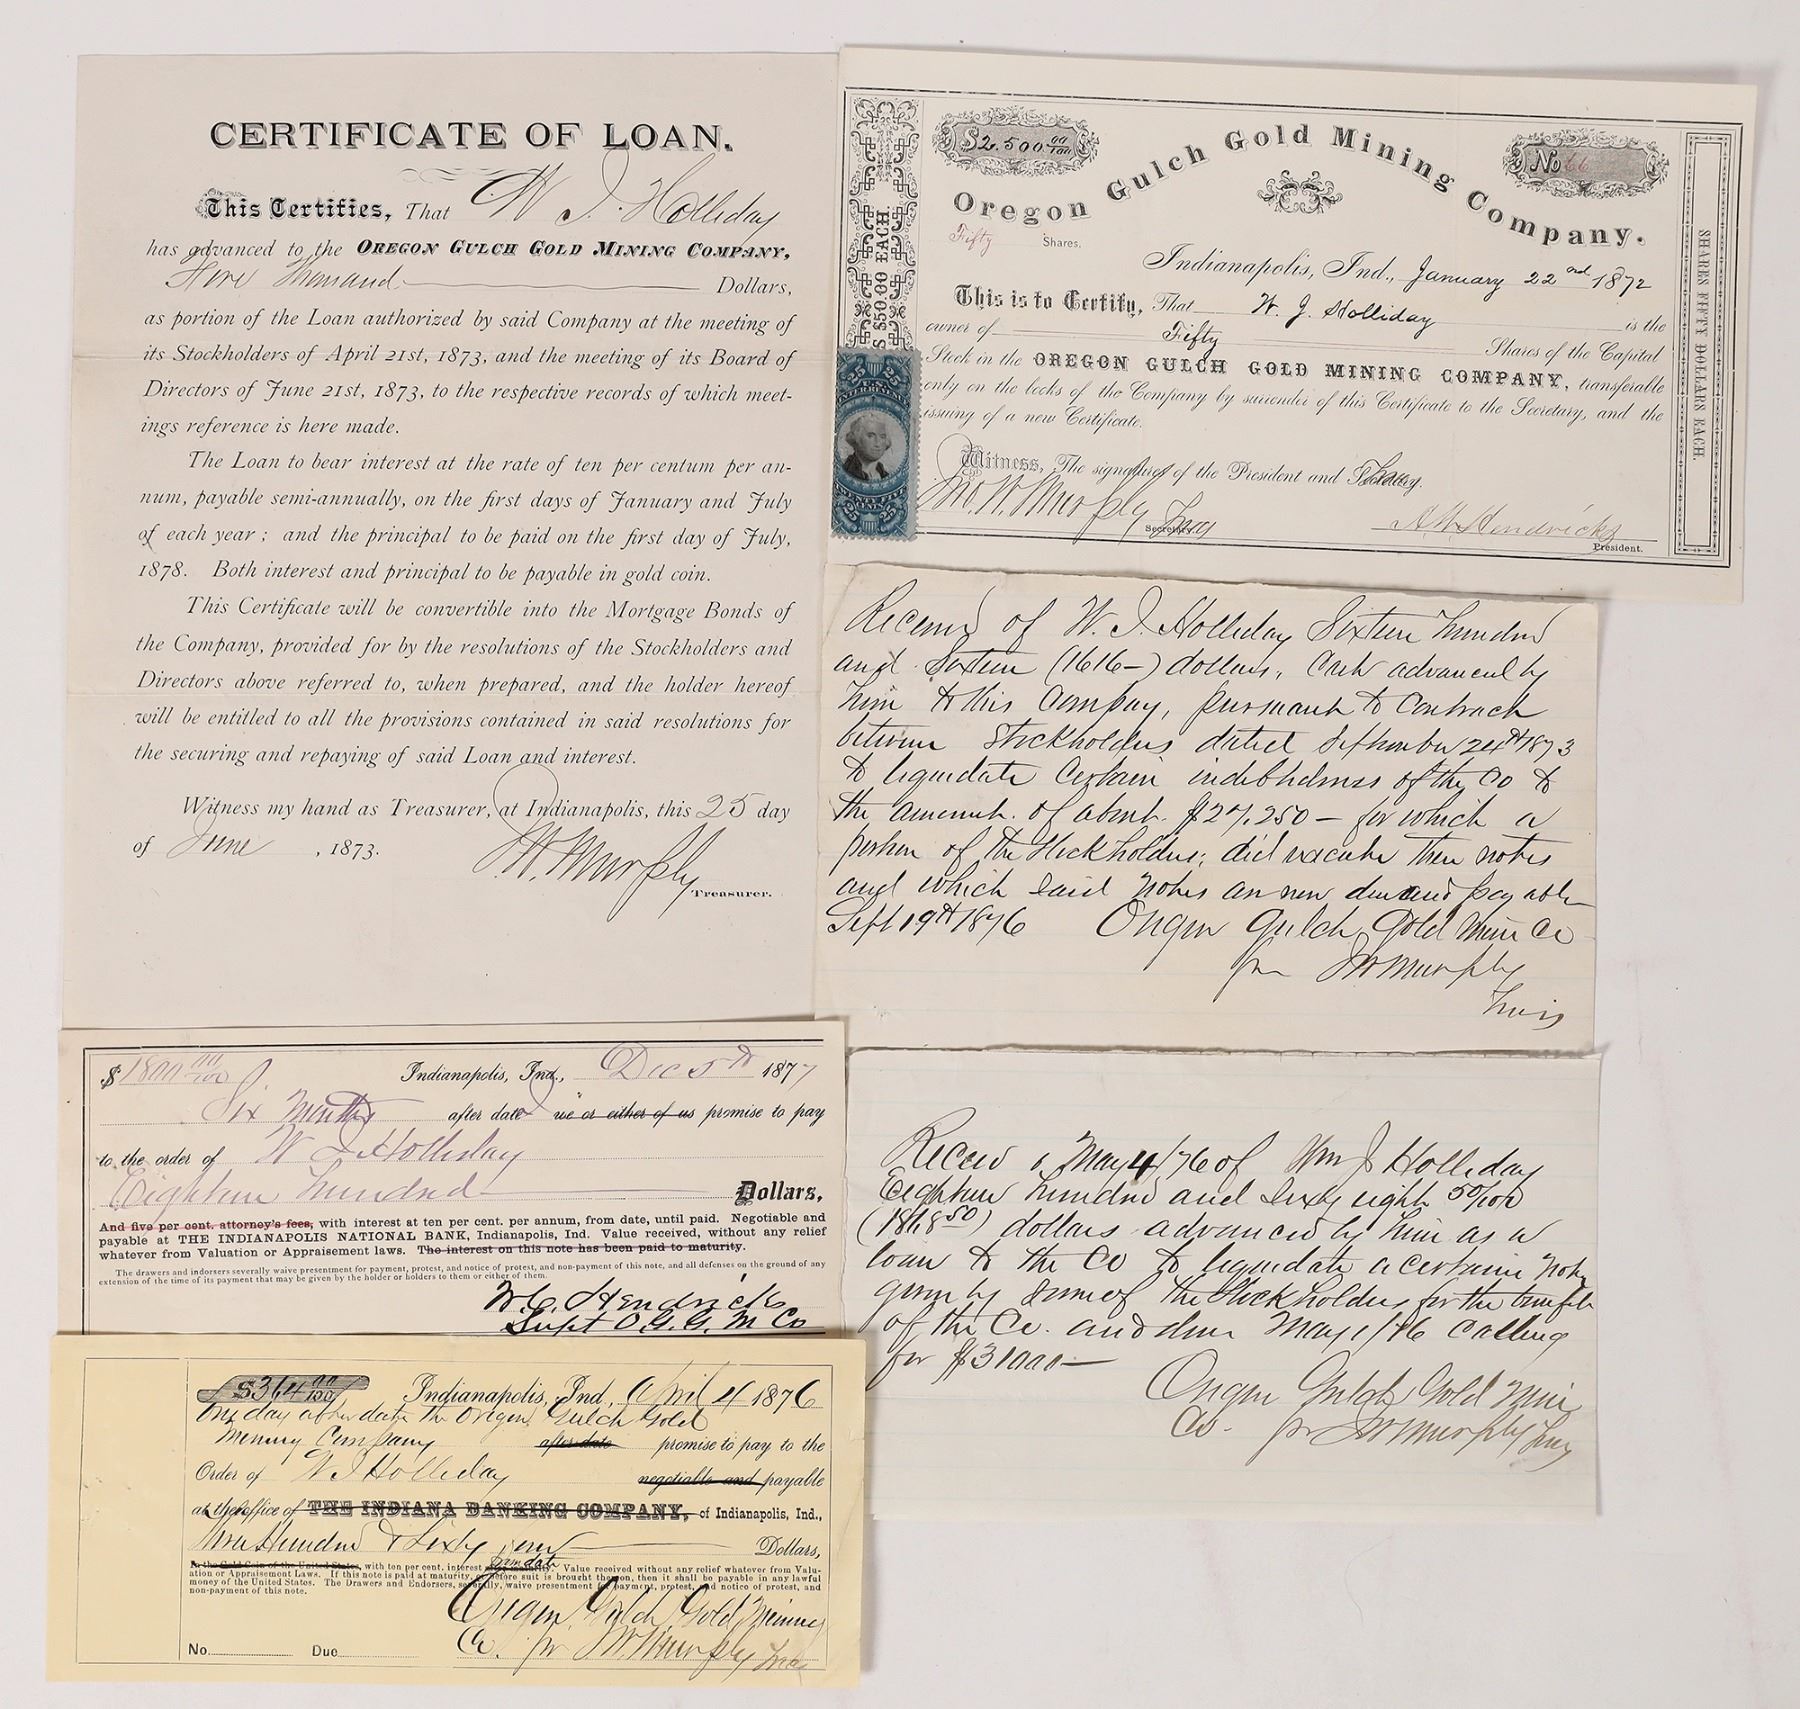 CERTIFICATE OF LOAN.
This Certifies, That W J. Holliday
has advanced to the OREGON GULCH GOLD MINING COMPANY,
Thousand Dollars,
as portion of the Loan authorized by said Company at the meeting of
its Stockholders of April 21st, 1873, and the meeting of its Board of
Directors of June 21st, 1873, to the respective records of which meet-
ings reference is here made.
The Loan to bear interest at the rate of ten per centum per an-
num, payable semi-annually, on the first days of January and July
of each year; and the principal to be paid on the first day of July,
1878. Both interest and principal to be payable in gold coin.
This Certificate will be convertible into the Mortgage Bonds of
the Company, provided for by the resolutions of the Stockholders and
Directors above referred to, when prepared, and the holder hereof
will be entitled to all the provisions contained in said resolutions for
the securing and repaying of said Loan and interest.
Witness my hand as Treasurer, at Indianapolis, this 25 day
of June, 1873.
J W. Murphy
Treasurer.
$2,500 00/100
No 66
Oregon Gulch Gold Mining Company.
Fifty Shares,
Indianapolis, Ind., January 22nd 1872
This is to Certify, That W. J. Holliday is the
owner of Fifty Shares of the Capital
Stock in the OREGON GULCH GOLD MINING COMPANY, transferable
only on the books of the Company by surrender of this Certificate to the Secretary, and the
issuing of a new Certificate.
Witness, The signatures of the President and
Jno. W. Murphy Treas
Secretary.
A W Hendricks
President.
$50.00 EACH.
SHARES FIFTY DOLLARS EACH.
25 25
25 25
Received of W. J. Holliday Sixteen Hundred
and Sixteen (1616-) dollars, Cash advanced by
him to this Company, pursuant to Contract
between Stockholders dated September 24th 1873
to liquidate Certain indebtedness of the Co to
the amount of about $27,250 - for which a
portion of the Stockholders, did execute their notes
and which said notes are now due and payable
Sept 19th 1876 Oregon Gulch Gold Mine Co
per J W Murphy
Treas
$1800 00/100 Indianapolis, Ind., Dec 5th 1877
Six Months after date I we or either of us promise to pay
to the order of W J Holliday
Eighteen Hundred Dollars,
And five per cent. attorney's fees, with interest at ten per cent. per annum, from date, until paid. Negotiable and
payable at THE INDIANAPOLIS NATIONAL BANK, Indianapolis, Ind. Value received, without any relief
whatever from Valuation or Appraisement laws. The interest on this note has been paid to maturity.
The drawers and indorsers severally waive presentment for payment, protest, and notice of protest, and non-payment of this note, and all defenses on the ground of any
extension of the time of its payment that may be given by the holder or holders to them or either of them.
Hendricks
Supt O. G. G. M Co
Received May 4/76 of Wm J Holliday
Eighteen hundred and sixty eight 50/100
(1868 50) dollars advanced by him as a
loan to the Co to liquidate a certain Note
given by some of the Stockholders for the benefit
of the Co. and due May 1/76 Calling
for $31000-
Oregon Gulch Gold Mine
Co. pr J W Murphy Treas
$364 00/100 Indianapolis, Ind., April 4 1876
One day after date the Oregon Gulch Gold
Mining Company after date promise to pay to the
Order of W J Holliday negotiable and payable
at the office of THE INDIANA BANKING COMPANY, of Indianapolis, Ind.,
Three Hundred & Sixty Four Dollars,
In the Gold Coin of the United States, with ten per cent. interest from date Value received without any relief whatever from Valu-
ation or Appraisement Laws. If this note is paid at maturity, or before suit is brought thereon, then it shall be payable in any lawful
money of the United States. The Drawers and Endorsers, severally, waive presentment for payment, protest, and notice of protest, and
non-payment of this note.
Oregon Gulch Gold Mining
Co. pr J W. Murphy Treas
No. Due